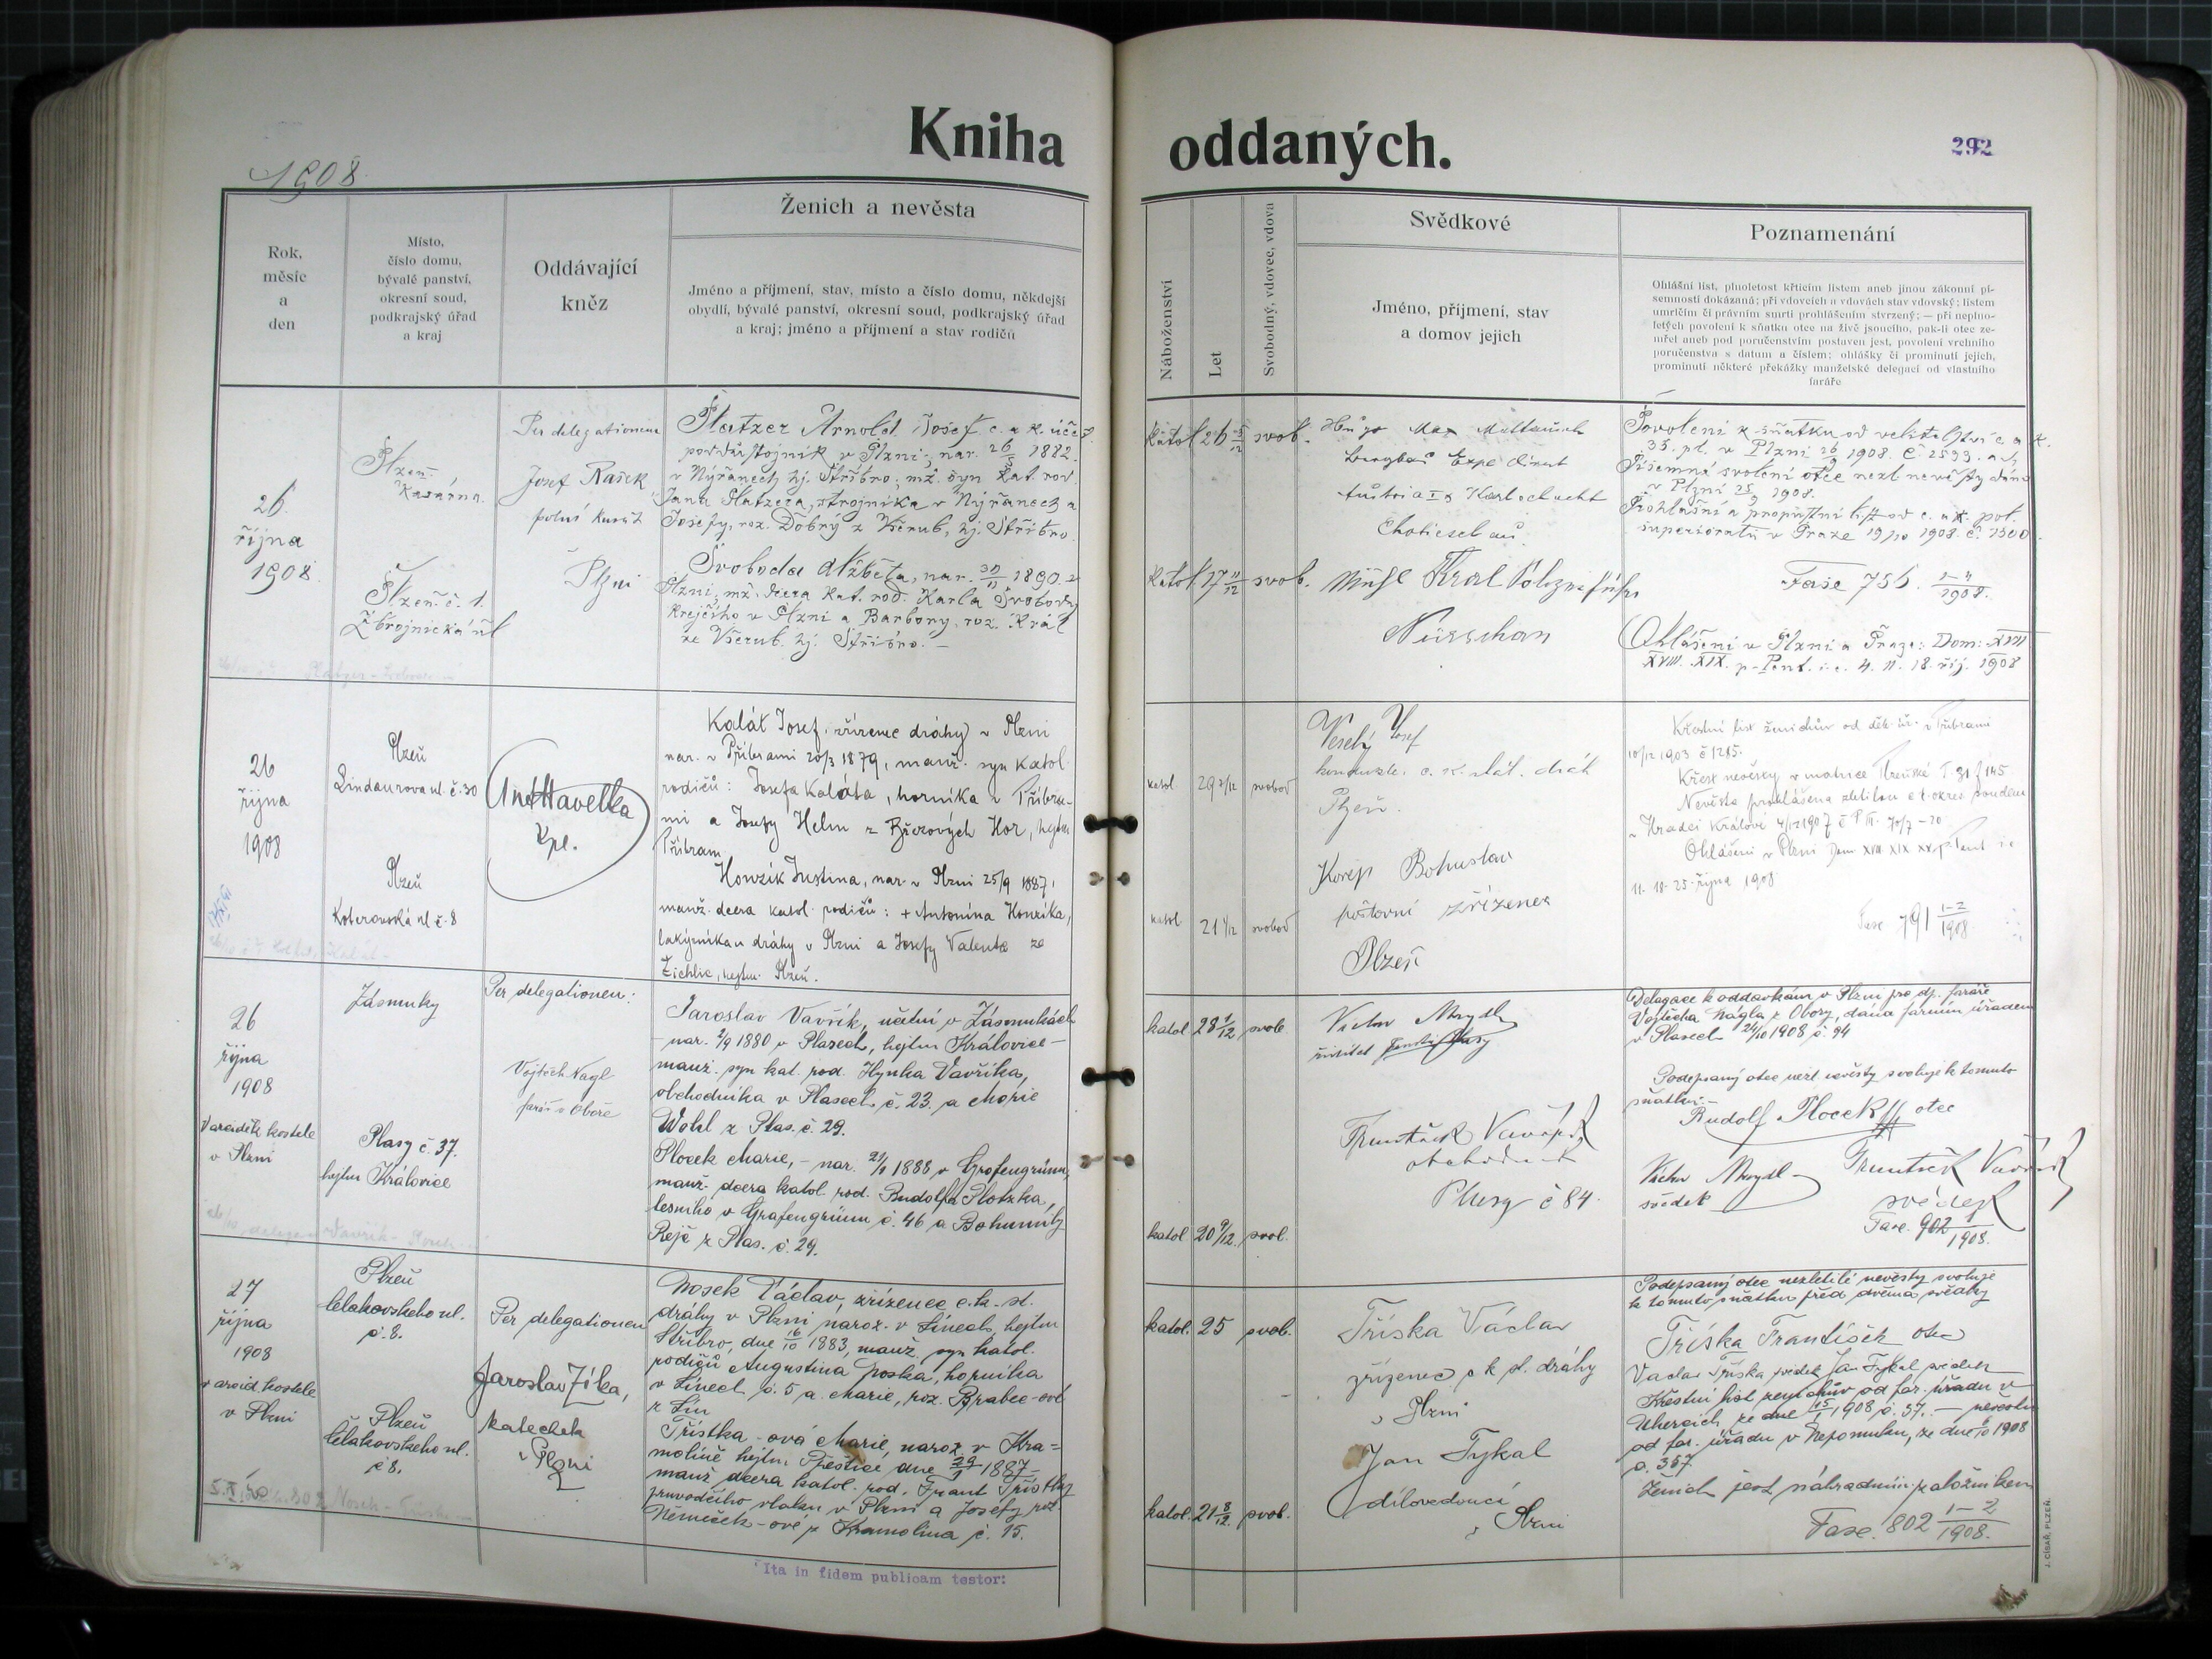 Kniha
oddaných.
292
1908
Rok,
měsíc
a
den
Místo,
číslo domu,
bývalé panství,
okresní soud,
podkrajský úřad
a kraj
Oddávající
kněz
Ženich a nevěsta
Jméno a příjmení, stav, místo a číslo domu, někdejší
obydlí, bývalé panství, okresní soud, podkrajský úřad
a kraj; jméno a příjmení a stav rodičů
Náboženství
Let
Svobodný, vdovec, vdova
Svědkové
Jméno, příjmení, stav
a domov jejich
Poznamenání
Ohlášní list, plnoletost křticím listem aneb jinou zákonní pí-
semností dokázaná; při vdovcích a vdovách stav vdovský; listem
umrlčím či právním smrti prohlášením stvrzený; — při neplno-
letých povolení k sňatku otce na živě jsoucího, pak-li otec ze-
mřel aneb pod poručenstvím postaven jest, povolení vrchního
poručenstva s datum a číslem; ohlášky či prominutí jejich,
prominutí některé překážky manželské delegací od vlastního
faráře
26.
října
1908
Plzeň
Kasárna.
Plzeň č. 1.
Zbrojnická ul
Per delegationem
Josef Rašek
polní kurát
Plzni
Platzer Arnold Josef c. a k. účet.
poddůstojník v Plzni, nar. 26/5 1882.
v Nýřanech hj. Stříbro, mž. syn kat. rod.
Jana Platzera, strojníka v Nýřanech a
Josefy, roz. Dobrý z Všerub, hj. Stříbro.
Svoboda Alžběta, nar. 30/11 1890. v
Plzni, mž. dcera kat. rod. Karla Svobody
krejčího v Plzni a Barbory, roz. Král
ze Všerub. hj. Stříbro. —
katol 26 5/12 svob.
katol 17 11/12 svob.
Hugo Max
Nürschan
Povolení k sňatku od velitelství c. a k.
35. pl. v Plzni 26/9 1908. č. 2593. a
Písemné svolení otce nezl. nevěsty dáno
v Plzni 25/9 1908.
Prohlášní a propustní list od c. a k. pol.
superiorátu v Praze 19/10 1908. č. 1500
Fasc 756. 1-4/1908.
Ohlášeni v Plzni a Praze: Dom: XVII
XVIII. XIX. p. Pent. i. e. 4. 11. 18. říj. 1908
26
října
1908
Plzeň
Lindaurova ul. č. 30
Plzeň
Koterovská ul č. 8
Ant Havelka
kpl.
Kalát Josef, zřízenec dráhy v Plzni
nar. v Příbrami 20/3 1879, manž. syn katol.
rodičů: Josefa Kaláta, horníka v Příbra-
mi a Josefy Helm z Březových Hor, hejtm
Příbram
Honzík Justina, nar. v Plzni 25/9 1887,
manž. dcera katol. rodičů: + Antonína Honzíka,
lakýrníka u dráhy v Plzni a Josefy Valenta ze
Žichlic, hejtm. Plzeň.
katol. 29 7/12 svobod
katol. 21 1/12 svobod
Veselý Josef
c. k. stát. drah
Plzeň.
Bohuslav
poštovní zřízenec
Plzeň
Křestní list ženichův od děk. úř. v Příbrami
10/12 1903 č 1215.
Křest nevěsty v matrice Plzeňské T. 31 f 145
Nevěsta prohlášena zletilou c. k. okres. soudem
v Hradci Králové 4/12 1907 č P III. 70/7 – 20
Ohlášeni v Plzni Dom XVIII XIX XX p. Pent i. e
11. 18. 25. října 1908
Fasc 791 1-2/1908
26
října
1908
v arciděk kostele
v Plzni
Zásmuky
Plasy č. 37.
hejtm Královice
Per delegationem:
Vojtěch Nagl
farář v Oboře
Jaroslav Vavřík, učitel v Zásmukách
– nar. 2/9 1880 v Plasech, hejtm Královice –
manž. syn kat. rod. Hynka Vavříka,
obchodníka v Plasech č. 23. a Marie
Wohl z Plas. č. 29.
Plocek Marie, – nar. 21/1 1888 v Grafengrünu,
manž. dcera katol. rod. Rudolfa Plotzka,
lesního v Grafengrünu č. 46 a Bohumily
Rejž z Plas. č. 29.
katol 28 1/12 svob
katol 20 9/12 svob.
Victor Mrydl
František Vavřík
obchodník
Plasy č 84.
Delegace k oddavkám v Plzni pro dp. faráře
Vojtěcha Nágla z Obory, dána farním úřadem
v Plasech 24/10 1908 č. 94
Podepsaný otec nezl. nevěsty svoluje k tomuto
sňatku:
Rudolf Plocek otec
Victor Mrydl
svědek
František Vavřík
svědek
Fasc. 902 1/1908.
27
října
1908
v arcid. kostele
v Plzni
Plzeň
Čelakovského ul.
č. 8.
Plzeň
Čelakovského ul.
č 8.
Per delegationem
Jaroslav Zíka,
katecheta
v Plzni
Nosek Václav, zřízenec c. k. st.
dráhy v Plzni, naroz. v Línech, hejtm
Stříbro, dne 16/10 1883, manž. syn katol.
rodičů Augustina Noska, horníka
v Línech č. 5 a Marie, roz. Brabec-ové
z Lín
Třístka-ová Marie, naroz. v Kra=
molíně hejtm. Přeštice dne 29/1 1887
manž dcera katol. rod. Frant Třístky
průvodčího vlaku v Plzni a Josefy roz
Němeček-ové z Kramolína č. 15.
katol. 25 svob.
katol. 21 8/12. svob.
Tříska Václav
zřízenec c k st. dráhy
v Plzni
Jan Tykal
dílovedoucí
v Plzni
Podepsaný otec nezletilé nevěsty svoluje
k tomuto sňatku před dvěma svědky
Tříska František otec
Václav Tříska svědek Jan Tykal svědek
Křestní list ženichův od far. úřadu v
Úhercích ze dne 1908 č. 57. — nevěstin
od far. úřadu v Nepomuku, ze dne 1908
č. 357.
Ženich jest náhradním záložníkem
Fasc. 802 1-2/1908.
Ita in fidem publicam testor:
J. CÍSAŘ, PLZEŇ.